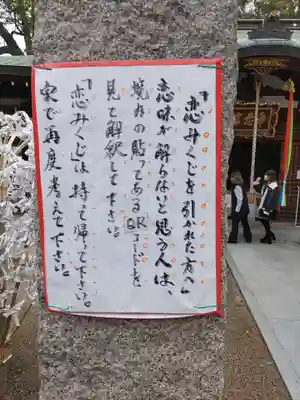 「恋みくじを引かれた方へ」
意味が解らないと思う人は、
境内の貼ってあるQRコードを
見て解釈して下さい。
「恋みくじは持て帰って下さい。
家で再度考えて下さい。